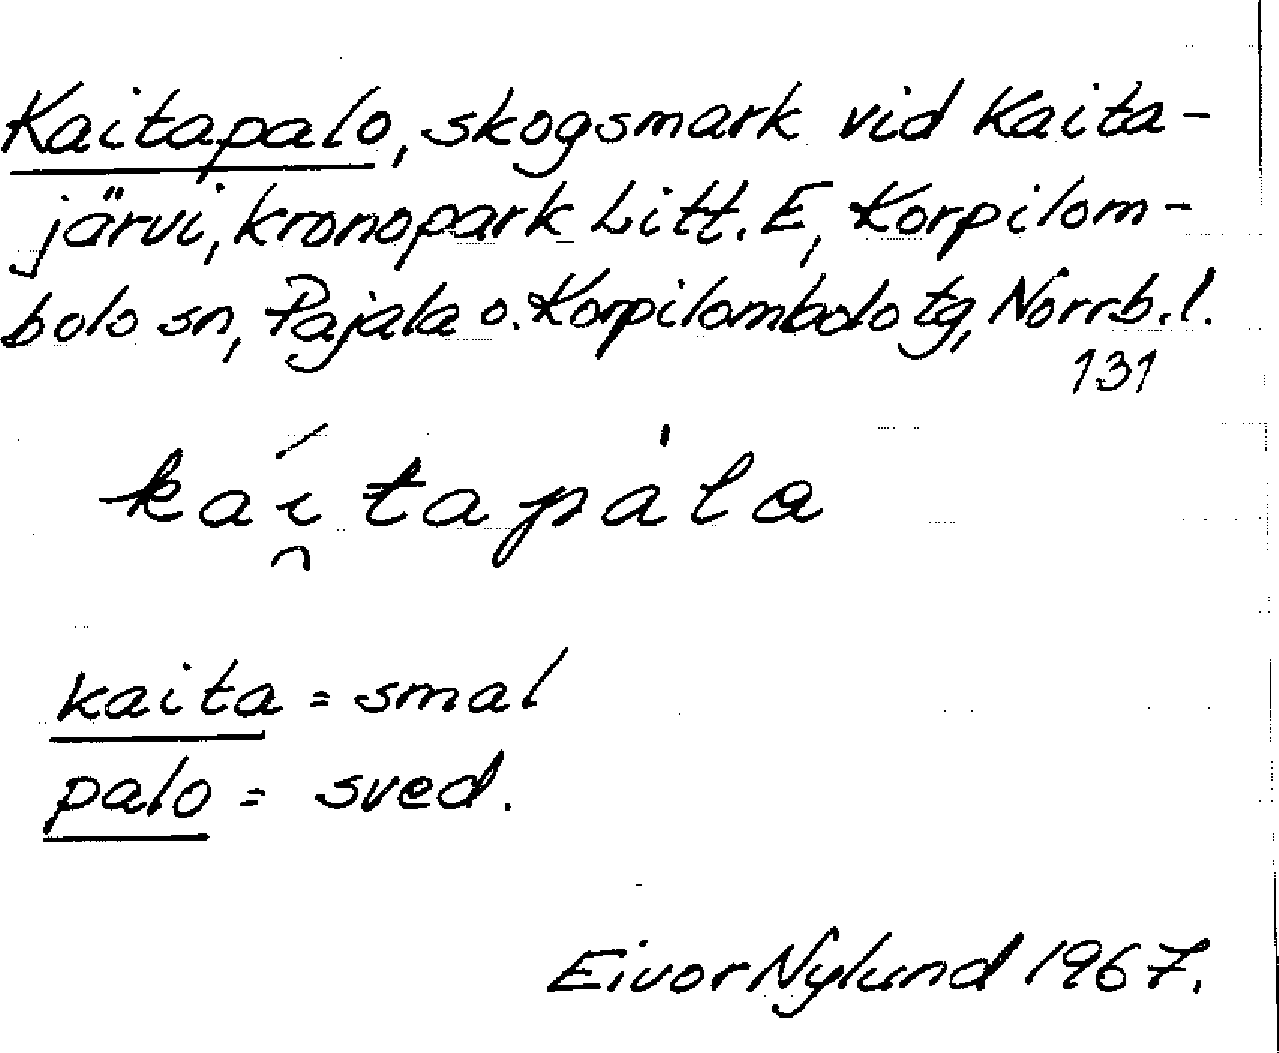 Kaitapalo, skogsmark vid Kaita-
järvi, kronopark Litt. E, Korpilom-
bolo sn, Pajala o. Korpilombolo tg, Norrb. l.
131
kaí̯tapàla
kaita = smal
palo = sved.
Eivor Nylund 1967.